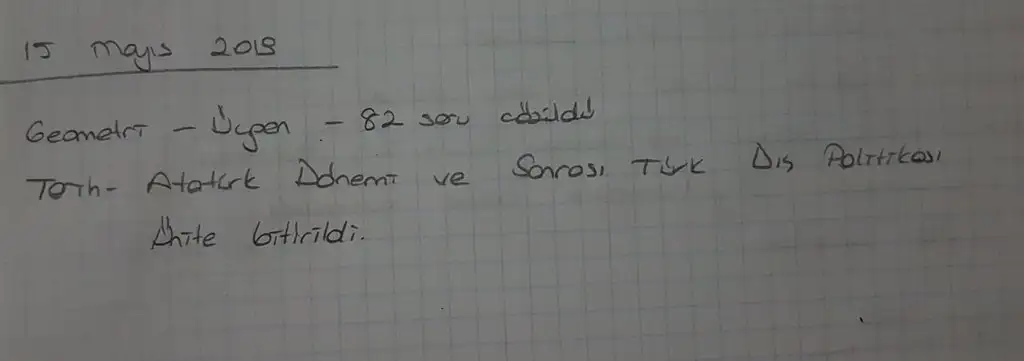 15 Mayıs 2019
Geometri - Üçgen - 82 soru çözüldü
Tarih - Atatürk Dönemi ve Sonrası Türk Dış Politikası
ünite bitirildi.